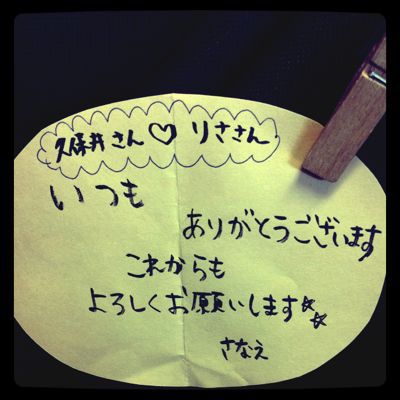 久保井さん♡りささん
いつも
ありがとうございます
これからも
よろしくお願いします☆☆
さなえ